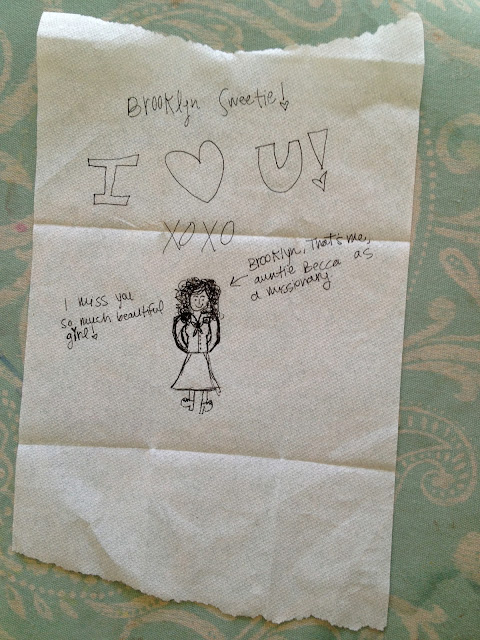 Brooklyn Sweetie!
I ♡ U!
XOXO
Brooklyn, That's me,
auntie Becca as
a missionary.
I miss you
so much beautiful
girl!